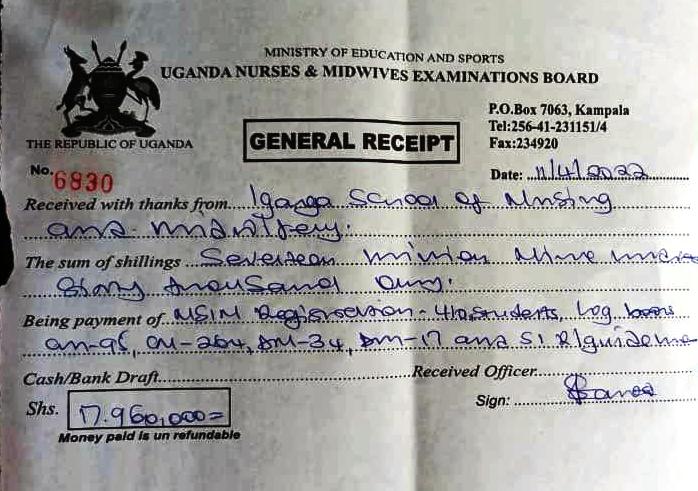 MINISTRY OF EDUCATION AND SPORTS
UGANDA NURSES & MIDWIVES EXAMINATIONS BOARD
THE REPUBLIC OF UGANDA
GENERAL RECEIPT
P.O.Box 7063, Kampala
Tel:256-41-231151/4
Fax:234920
No. 6830
Date: 11/4/2022
Received with thanks from Iganga School of Nursing
and midwifery.
The sum of shillings Seventeen million Nine
Sixty thousand only.
Being payment of Registration - students, Log books
and
Cash/Bank Draft
Received Officer
Shs. 17.960,000=
Sign:
Money paid is un refundable